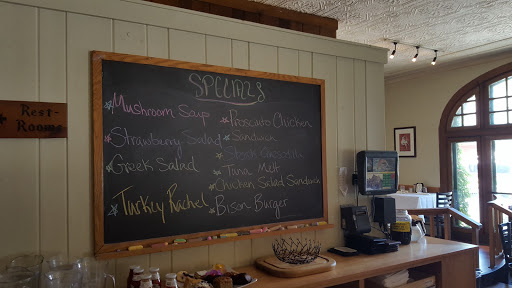 SPECIALS
Mushroom Soup
Strawberry Salad
Greek Salad
Turkey Rachel
Prosciuto Chicken
Sandwich
Tuna Melt
Chicken Salad Sandwich
Bison Burger
Rest-
Rooms